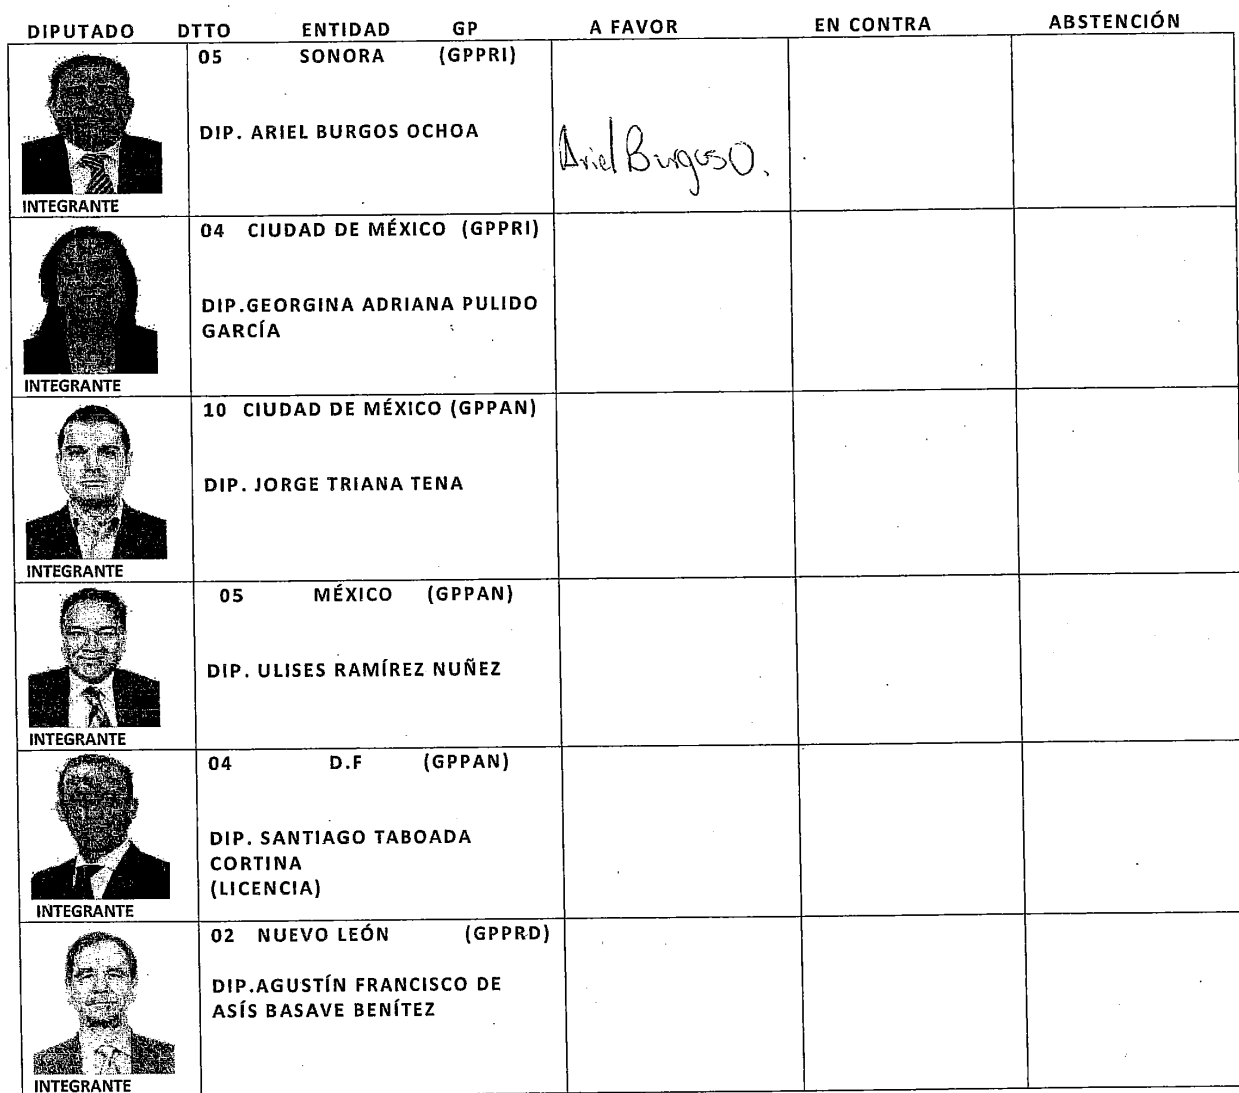 DIPUTADO DTTO ENTIDAD GP A FAVOR EN CONTRA ABSTENCIÓN
05 SONORA (GPPRI)
DIP. ARIEL BURGOS OCHOA
Ariel Burgos O.
INTEGRANTE
04 CIUDAD DE MÉXICO (GPPRI)
DIP.GEORGINA ADRIANA PULIDO
GARCÍA
INTEGRANTE
10 CIUDAD DE MÉXICO (GPPAN)
DIP. JORGE TRIANA TENA
INTEGRANTE
05 MÉXICO (GPPAN)
DIP. ULISES RAMÍREZ NUÑEZ
INTEGRANTE
04 D.F (GPPAN)
DIP. SANTIAGO TABOADA
CORTINA
(LICENCIA)
INTEGRANTE
02 NUEVO LEÓN (GPPRD)
DIP.AGUSTÍN FRANCISCO DE
ASÍS BASAVE BENÍTEZ
INTEGRANTE